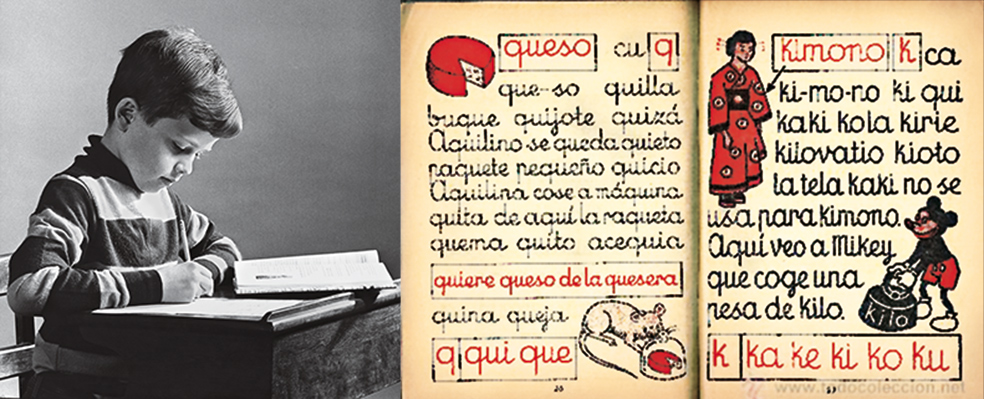 queso cu q
que-so quilla
buque quijote quizá
Aquilino se queda quieto
paquete pequeño quicio
Aquilina cose a máquina
quita de aquí la raqueta
quema quito acequia
quiere queso de la quesera
quina queja
q qui que
kimono k ca
ki-mo-no ki qui
kaki kola kirie
kilovatio kioto
la tela kaki no se
usa para kimono.
Aquí veo a Mikey
que coge una
pesa de kilo.
kilo
k ka ke ki ko ku
www.todocoleccion.net